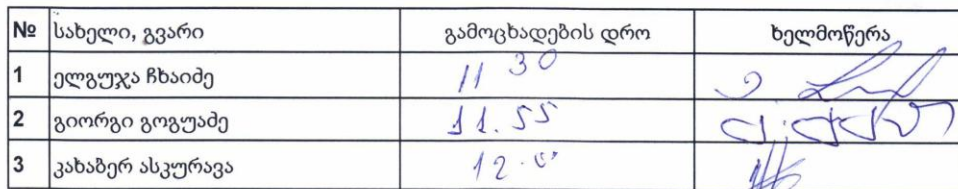 № სახელი, გვარი გამოცხადების დრო ხელმოწერა
1 ელგუჯა ჩხაიძე 11 30
2 გიორგი გოგუაძე 11.55
3 კახაბერ ასკურავა